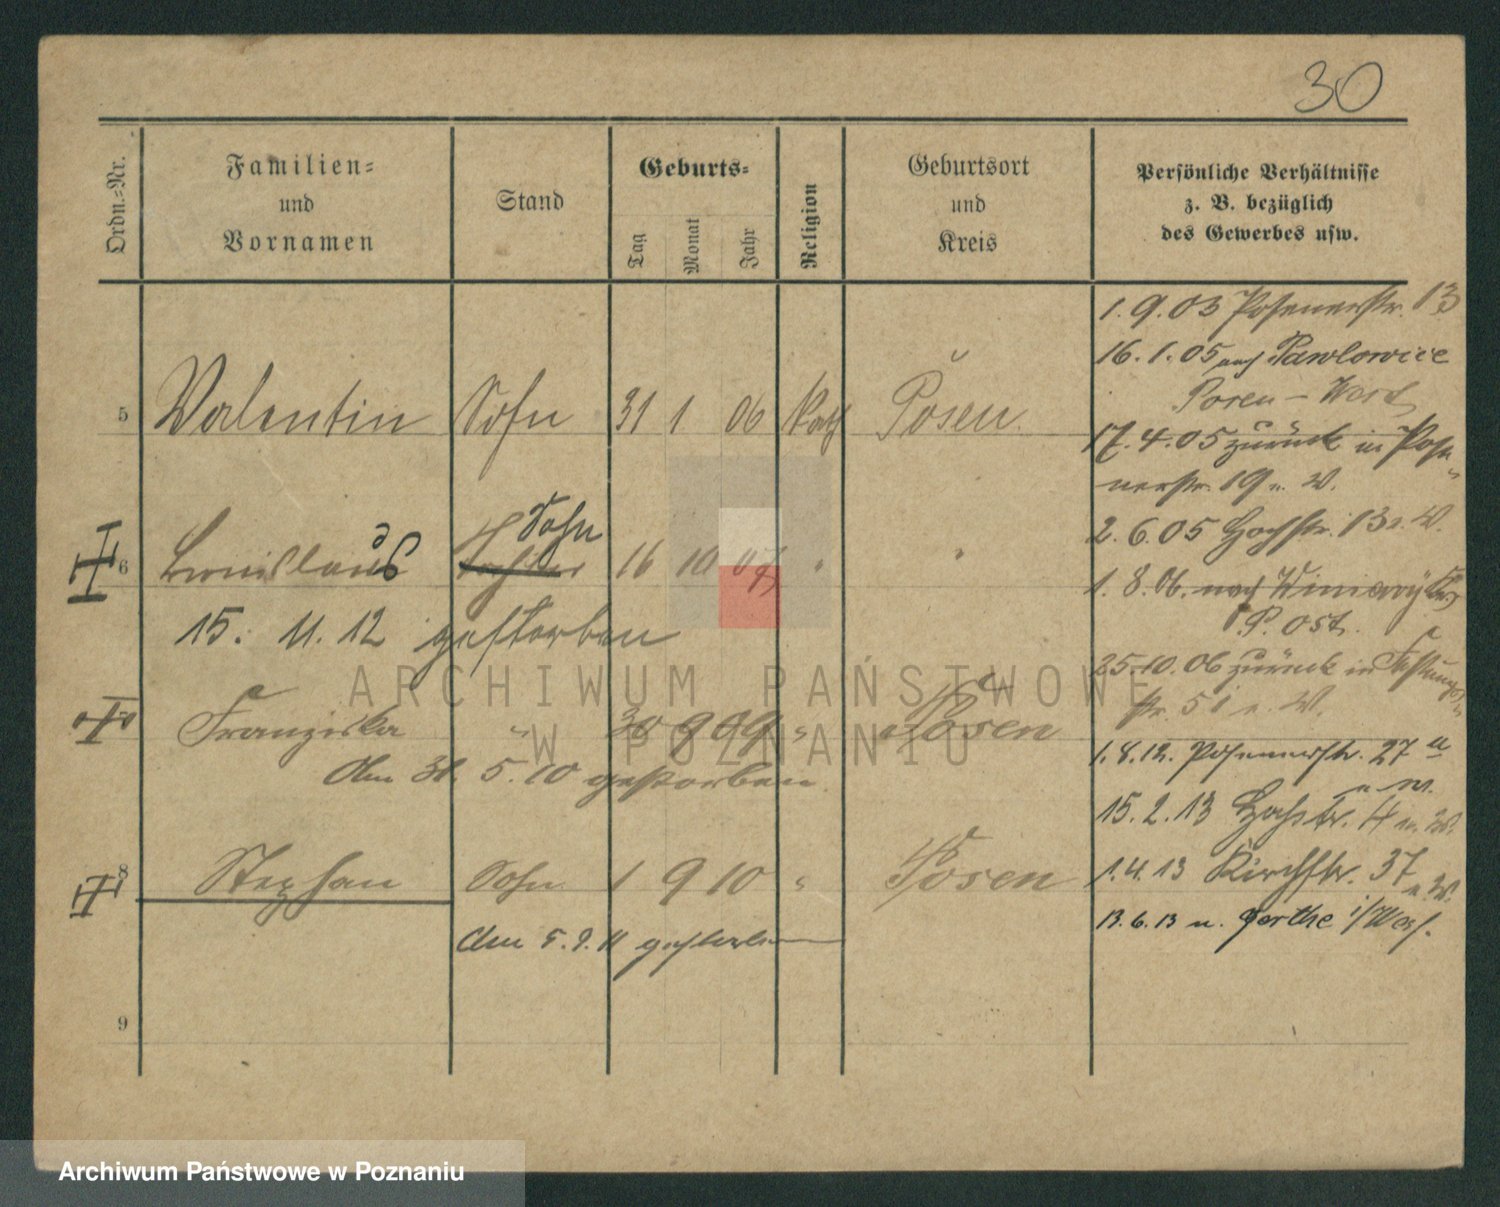 30
Ordn.-Nr.
Familien-
und
Vornamen
Stand
Geburts-
Tag
Monat
Jahr
Religion
Geburtsort
und
Kreis
Persönliche Verhältnisse
z. B. bezüglich
des Gewerbes usw.
5 Valentin Sohn 31 1 06 Kath Posen.
6 Bronislaus Tochter Sohn 16 10 07 " "
15. 11. 12 gestorben
Franziska " 30 9 09 " Posen
den 31. 5. 10 gestorben.
8 Stephan Sohn 1 9 10 " Posen
den 5. 9. 11 gestorben
9
1. 9. 03 Posenerstr. 13
16. 1. 05 nach Pawlowice
Posen - West
17. 4. 05 zurück in Pose-
nerstr. 19 u. W.
2. 6. 05 Hochstr. 13 u. W.
1. 8. 06. nach Winiary
P. Ost.
25. 10. 06 zurück in Festungs-
str. 5 u. W.
1. 8. 12. Posenerstr. 27 a
u. W.
15. 2. 13 Hochstr. 4 u. W.
1. 4. 13 Kirchstr. 37 u. W.
13. 6. 13 n. Gerthe i/Westf.
ARCHIWUM PAŃSTWOWE
W POZNANIU
Archiwum Państwowe w Poznaniu